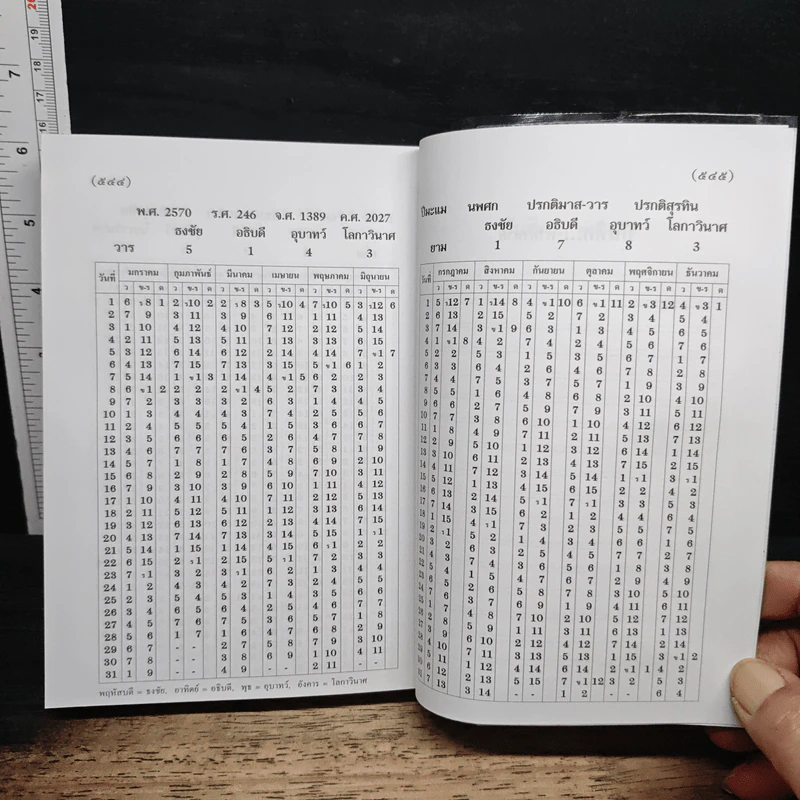 (๕๔๔)
พ.ศ. 2570 ร.ศ. 246 จ.ศ. 1389 ค.ศ. 2027
ธงชัย อธิบดี อุบาทว์ โลกาวินาศ
วาร 5 1 4 3
วันที่ มกราคม กุมภาพันธ์ มีนาคม เมษายน พฤษภาคม มิถุนายน
ว ข-ร ด ว ข-ร ด ว ข-ร ด ว ข-ร ด ว ข-ร ด ว ข-ร ด
1 6 ร 8 1 2 ร10 2 2 ร 8 3 5 ร10 4 7 ร10 5 3 ร12 6
2 7 9 3 11 3 9 6 11 1 11 4 13
3 1 10 4 12 4 10 7 12 2 12 5 14
4 2 11 5 13 5 11 1 13 3 13 6 15
5 3 12 6 14 6 12 2 14 4 14 7 ข1 7
6 4 13 7 15 7 13 3 15 5 ข1 6 1 2
7 5 14 1 ข1 3 1 14 4 ข1 5 6 2 2 3
8 6 ข1 2 2 2 2 ข1 4 5 2 7 3 3 4
9 7 2 3 3 3 2 6 3 1 4 4 5
10 1 3 4 4 4 3 7 4 2 5 5 6
11 2 4 5 5 5 4 1 5 3 6 6 7
12 3 5 6 6 6 5 2 6 4 7 7 8
13 4 6 7 7 7 6 3 7 5 8 1 9
14 5 7 1 8 1 7 4 8 6 9 2 10
15 6 8 2 9 2 8 5 9 7 10 3 11
16 7 9 3 10 3 9 6 10 1 11 4 12
17 1 10 4 11 4 10 7 11 2 12 5 13
18 2 11 5 12 5 11 1 12 3 13 6 14
19 3 12 6 13 6 12 2 13 4 14 7 15
20 4 13 7 14 7 13 3 14 5 15 1 ร1
21 5 14 1 15 1 14 4 15 6 ร1 2 2
22 6 15 2 ร1 2 15 5 ร1 7 2 3 3
23 7 ร1 3 2 3 ร1 6 2 1 3 4 4
24 1 2 4 3 4 2 7 3 2 4 5 5
25 2 3 5 4 5 3 1 4 3 5 6 6
26 3 4 6 5 6 4 2 5 4 6 7 7
27 4 5 7 6 7 5 3 6 5 7 1 8
28 5 6 1 7 1 6 4 7 6 8 2 9
29 6 7 - - 2 7 5 8 7 9 3 10
30 7 8 - - 3 8 6 9 1 10 4 11
31 1 9 - - 4 9 - - 2 11
พฤหัสบดี = ธงชัย, อาทิตย์ = อธิบดี, พุธ = อุบาทว์, อังคาร = โลกาวินาศ
(๕๔๕)
ปีมะแม นพศก ปรกติมาส-วาร ปรกติสุรทิน
ธงชัย อธิบดี อุบาทว์ โลกาวินาศ
ยาม 1 7 8 3
วันที่ กรกฎาคม สิงหาคม กันยายน ตุลาคม พฤศจิกายน ธันวาคม
ว ข-ร ด ว ข-ร ด ว ข-ร ด ว ข-ร ด ว ข-ร ด ว ข-ร ด
1 5 ร12 7 1 ร14 8 4 ข1 10 6 ข1 11 2 ข3 12 4 ข3 1
2 6 13 2 15 5 2 7 2 3 4 5 4
3 7 14 3 ข1 9 6 3 1 3 4 5 6 5
4 1 ข1 8 4 2 7 4 2 4 5 6 7 6
5 2 2 5 3 1 5 3 5 6 7 1 7
6 3 3 6 4 2 6 4 6 7 8 2 8
7 4 4 7 5 3 7 5 7 1 9 3 9
8 5 5 1 6 4 8 6 8 2 10 4 10
9 6 6 2 7 5 9 7 9 3 11 5 11
10 7 7 3 8 6 10 1 10 4 12 6 12
11 1 8 4 9 7 11 2 11 5 13 7 13
12 2 9 5 10 1 12 3 12 6 14 1 14
13 3 10 6 11 2 13 4 13 7 15 2 15
14 4 11 7 12 3 14 5 14 1 ร1 3 ร1
15 5 12 1 13 4 15 6 15 2 2 4 2
16 6 13 2 14 5 ร1 7 ร1 3 3 5 3
17 7 14 3 15 6 2 1 2 4 4 6 4
18 1 15 4 ร1 7 3 2 3 5 5 7 5
19 2 ร1 5 2 1 4 3 4 6 6 1 6
20 3 2 6 3 2 5 4 5 7 7 2 7
21 4 3 7 4 3 6 5 6 1 8 3 8
22 5 4 1 5 4 7 6 7 2 9 4 9
23 6 5 2 6 5 8 7 8 3 10 5 10
24 7 6 3 7 6 9 1 9 4 11 6 11
25 1 7 4 8 7 10 2 10 5 12 7 12
26 2 8 5 9 1 11 3 11 6 13 1 13
27 3 9 6 10 2 12 4 12 7 14 2 14
28 4 10 7 11 3 13 5 13 1 15 3 ข1 2
29 5 11 1 12 4 14 6 14 2 ข1 1 4 2
30 6 12 2 13 5 15 7 ข1 12 3 2 5 3
31 7 13 3 14 - - 1 2 - - 6 4